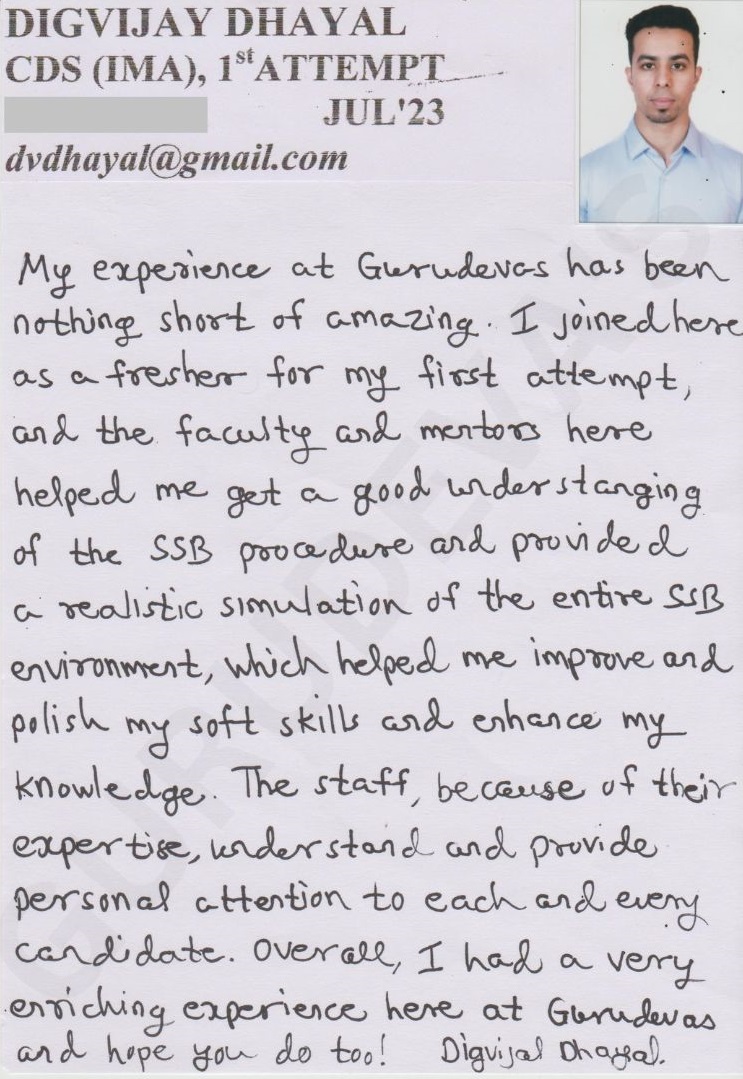 DIGVIJAY DHAYAL
CDS (IMA), 1st ATTEMPT
JUL'23
dvdhayal@gmail.com
My experience at Gurudevas has been
nothing short of amazing. I joined here
as a fresher for my first attempt,
and the faculty and mentors here
helped me get a good understanging
of the SSB procedure and provided
a realistic simulation of the entire SSB
environment, which helped me improve and
polish my soft skills and enhance my
knowledge. The staff, because of their
expertise, understand and provide
personal attention to each and every
candidate. Overall, I had a very
enriching experience here at Gurudevas
and hope you do too! Digvijal Dhayal.
GURUDEVAS